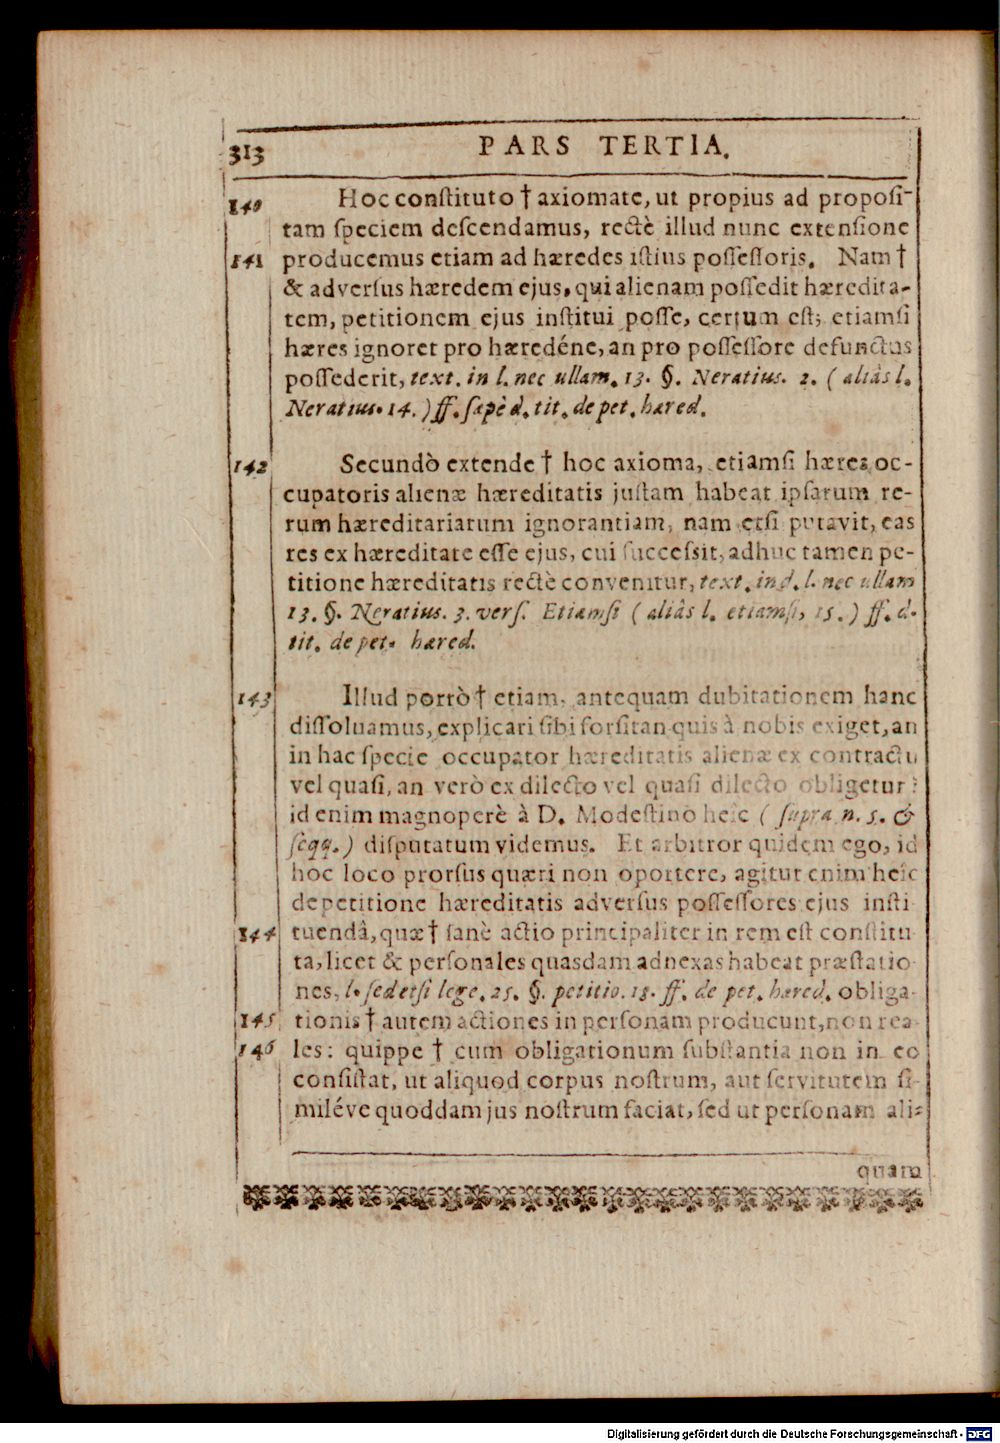 313 PARS TERTIA.
140 Hoc conſtituto † axiomate, ut propius ad propoſi-
tam ſpeciem deſcendamus, rectè illud nunc extenſione
141 producemus etiam ad hæredes iſtius poſſeſſoris. Nam †
& adverſus hæredem ejus, qui alienam poſſedit hæredita-
tem, petitionem ejus inſtitui poſſe, certum eſt; etiamſi
hæres ignoret pro hæredéne, an pro poſſeſſore defunctus
poſſederit, text. in l. nec ullam. 13. §. Neratius. 2. ( aliàs l.
Neratius. 14. ) ff. ſæpè d. tit. de pet. hæred.
142 Secundò extende † hoc axioma, etiamſi hæres oc-
cupatoris alienæ hæreditatis juſtam habeat ipſarum re-
rum hæreditariarum ignorantiam, nam etſi putavit, eas
res ex hæreditate eſſe ejus, cui ſucceſsit, adhuc tamen pe-
titione hæreditatis rectè convenitur, text. in d. l. nec ullam
13. §. Neratius. 3. verſ. Etiamſi ( aliâs l. etiamſi, 15. ) ff. d.
tit. de pet. hæred.
143 Illud porrò † etiam, antequam dubitationem hanc
diſſoluamus, explicari ſibi forſitan quis à nobis exiget, an
in hac ſpecie occupator hæreditatis alienæ ex contractu
vel quaſi, an verò ex dilecto vel quaſi dilecto obligetur?
id enim magnoperè à D. Modeſtino heic ( ſupra n. 5. &
ſeqq. ) diſputatum videmus. Et arbitror quidem ego, id
hoc loco prorſus quæri non oportere, agitur enim heic
de petitione hæreditatis adverſus poſſeſſores ejus inſti
144 tuendâ, quæ † ſanè actio principaliter in rem eſt conſtitu
ta, licet & perſonales quasdam adnexas habeat præſtatio
nes, l. ſed etſi lege. 25. §. petitio. 18. ff. de pet. hæred. obliga-
145 tionis † autem actiones in perſonam producunt, non rea
146 les: quippe † cum obligationum ſubſtantia non in eo
conſiſtat, ut aliquod corpus noſtrum, aut ſervitutem ſi-
miléve quoddam jus noſtrum faciat, ſed ut perſonam ali-
quam
Digitalisierung gefördert durch die Deutsche Forschungsgemeinschaft - DFG